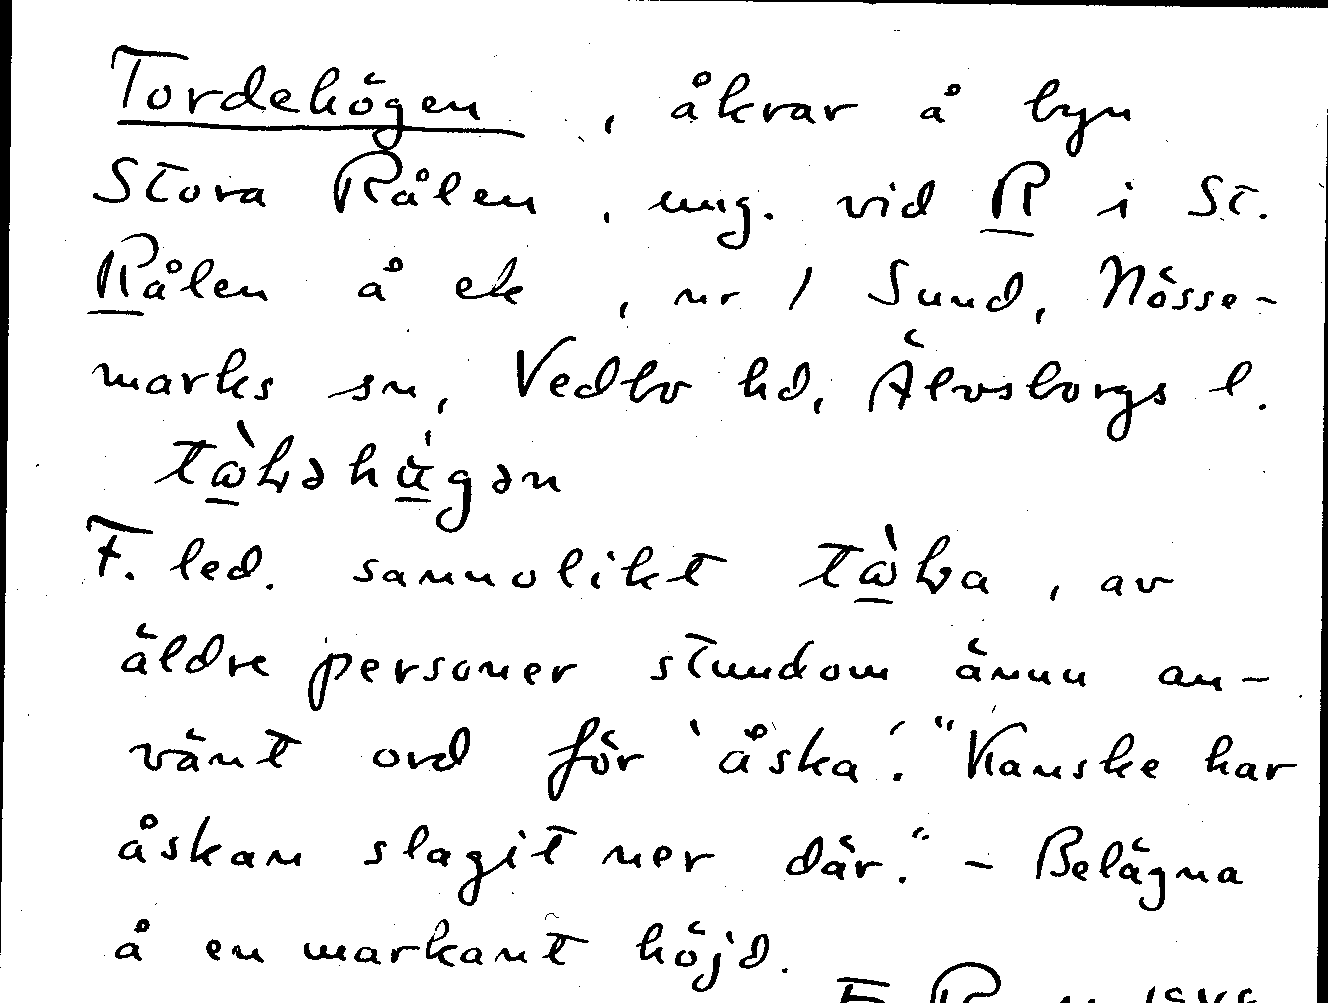 Tordehögen, åkrar å byn
Stora Rålen, ung. vid R i St.
Rålen å ek, nr 1 Sund, Nösse-
marks sn, Vedbo hd, Älvsborgs l.
F. led. sannolikt, av
äldre personer stundom ännu an-
vänt ord för 'åska'. "Kanske har
åskan slagit ner där." - Belägna
å en markant höjd.